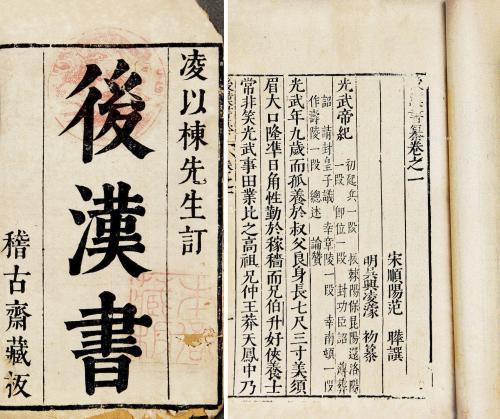 凌以棟先生訂
後漢書
稽古齋藏板
後漢書纂卷之一
宋順陽范 曄譔
明吳興凌濛 初纂
光武帝紀
初起兵一段 長棘陽保昆陽還洛陽
一段 卽位一段 封功臣詔 薄葬
詔 請封皇子議 幸章陵一段 幸南頓一段
作壽陵一段 總述 論贊
光武年九歲而孤養於叔父良身長七尺三寸美須
眉大口隆準日角性勤於稼穡而兄伯升好俠養士
常非笑光武事田業比之高祖兄仲王莽天鳳中乃